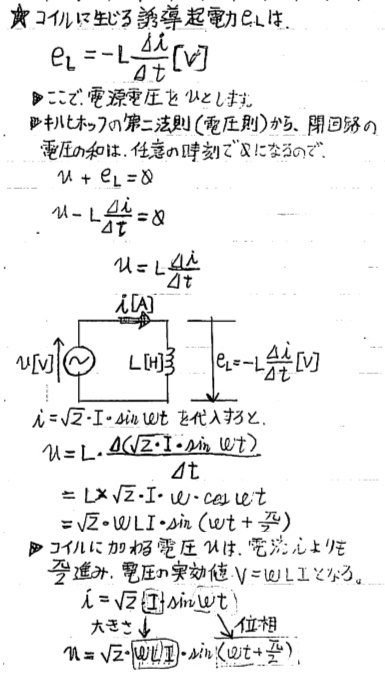 ☆ コイルに生じる誘導起電力eLは、
eL = -L Δi/Δt [V]
▶ここで、電源電圧をuとします。
▶キルヒホッフの第二法則(電圧則)から、閉回路の
電圧の和は、任意の時刻で0になるので、
u + eL = 0
u - L Δi/Δt = 0
u = L Δi/Δt
i[A]
u[V] L[H] eL = -L Δi/Δt [V]
i = √2・I・sin ωt を代入すると、
u = L・Δ(√2・I・sin ωt)/Δt
= L×√2・I・ω・cos ωt
= √2・ωLI・sin (ωt + π/2)
▶コイルに加わる電圧uは、電流iよりも
π/2 進み、電圧の実効値V=ωLIとなる。
i = √2・I・sin ωt
大きさ↓ ↘位相
u = √2・ωLI・sin (ωt + π/2)